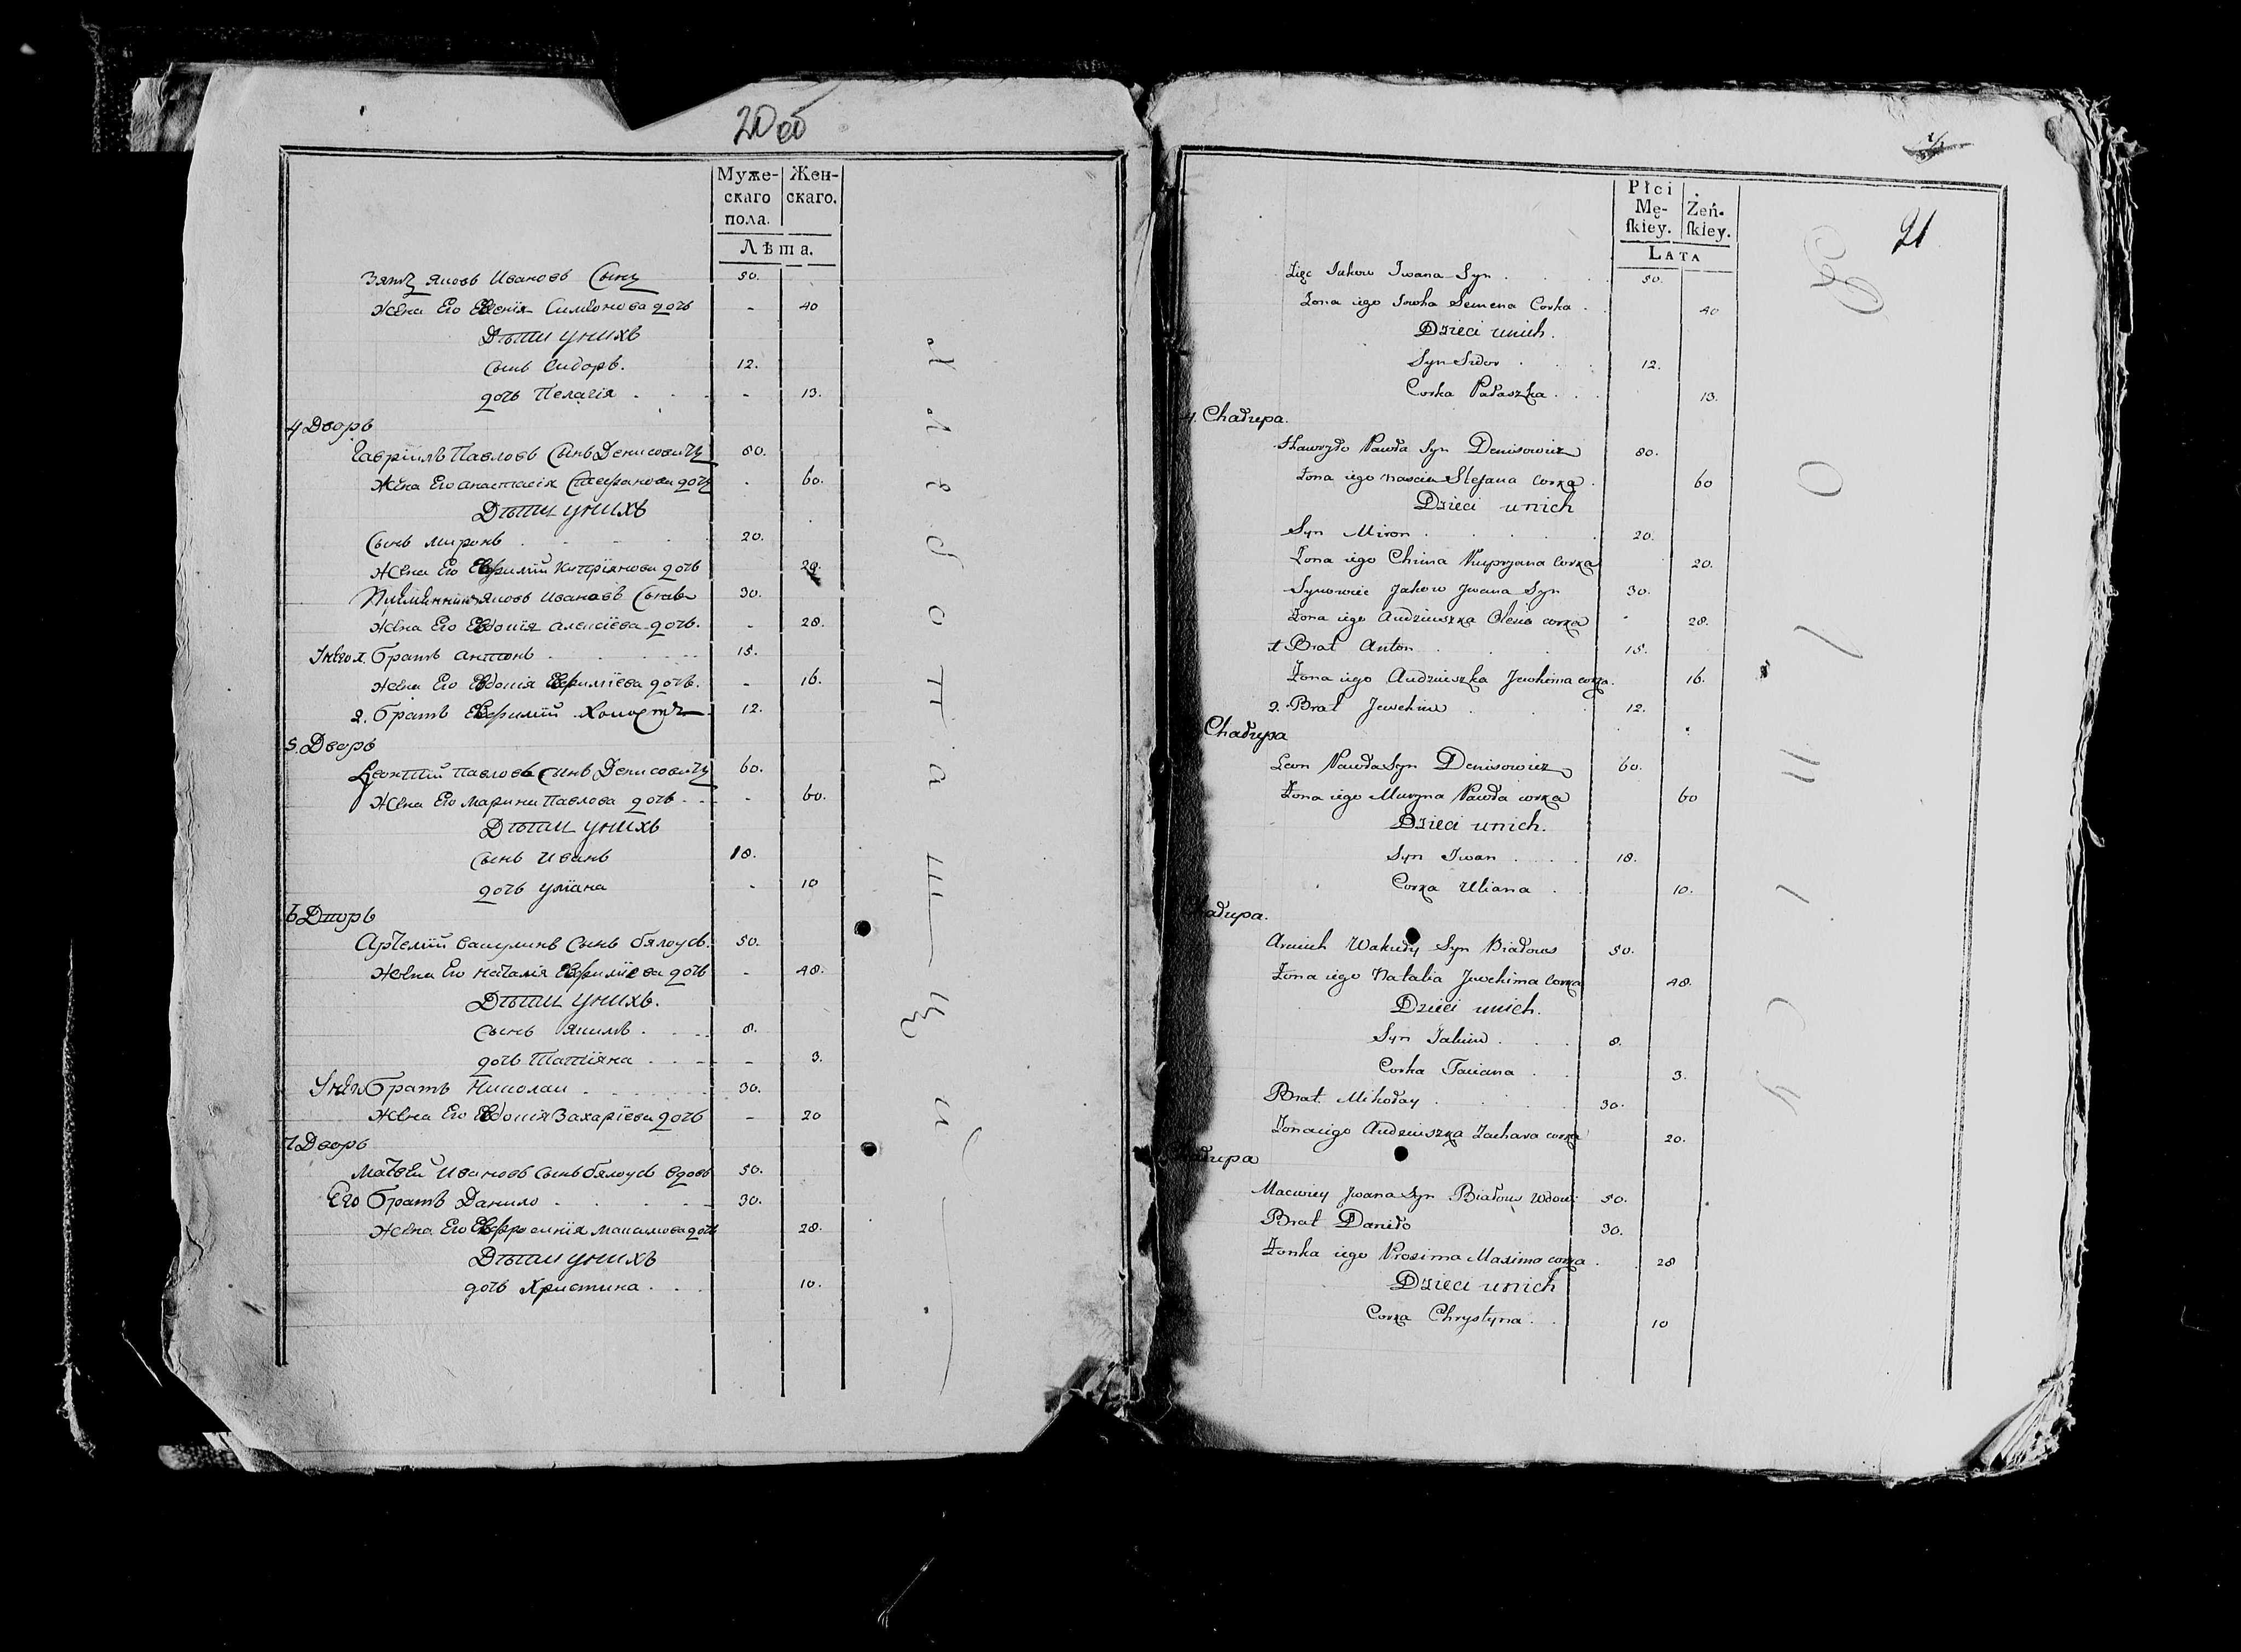 20 об
Муже- Жен-
скаго скаго.
пола.
Лѣта.
Зять Яковъ Ивановъ Сынъ 50.
Жена Его Евгенія Симеонова дочь - 40
Дѣти унихъ
Сынъ Сидоръ. 12.
дочь Пелагія - 13.
4 Дворъ
Гавріилъ Павловъ Сынъ Денисовичъ 80.
Жена Его Анастасія Стефанова дочь - 60.
Дѣти унихъ
Сынъ Миронъ 20.
Жена Его Евфимія Кипріянова дочь 20.
Племянникъ Яковъ Ивановъ Сынъ 30.
Жена Его Евдокія Алексіева дочь. - 28.
Унего 1. братъ Антонъ 15.
Жена Его Евдокія Евфиміева дочь. - 16.
2. братъ Евфимій Холостъ 12.
5. Дворъ
Леонтій Павловъ Сынъ Денисовичъ 60.
Жена Его Марина Павлова дочь - 60.
Дѣти унихъ
Сынъ Иванъ 18.
дочь Уліана - 10
6 Дворъ
Артемій Вакулинъ Сынъ бялоусъ. 50.
Жена Его Наталія Евфиміева дочь - 48.
Дѣти унихъ.
Сынъ Якимъ 8.
дочь Татіяна - 3.
Унего братъ Николай 30.
Жена Его Евдокія Захаріева дочь - 20
7 Дворъ
Матвей Ивановъ Сынъ бялоусъ вдовъ 50.
Его братъ Данило 30.
Жена Его Евфросинія Максимова дочь 28.
Дѣти унихъ
дочь Христина 10.
21
Płci
Mę- Żeń-
skiey. skiey.
LATA
Zięc Jakow Iwana Syn 50.
Żona iego Iowha Semena Corka 40
Dzieci unich.
Syn Sidor 12.
Corka Pałaszka 13.
4. Chałupa.
Hawryło Pawła Syn Denisowicz 80.
Żona iego Nascia Stefana Corka 60
Dzieci unich
Syn Miron 20.
Żona iego Chima Kupryana Corka 20.
Synowiec Jakow Jwana Syn 30.
Żona iego Audziuszka Olexia corka 28.
1 Brat Anton 15.
Żona iego Audziuszka Jewchima corka. 16.
2. Brat Jewchim 12.
Chałupa
Leon Pawła Syn Denisowicz 60.
Żona iego Maryna Pawła corka 60
Dzieci unich.
Syn Iwan 18.
Corka Uliana 10.
Chałupa.
Arcicich Wakuły Syn Białous 50.
Żona iego Natalia Jewchima Corka 48.
Dzieci unich.
Syn Jakim 8.
Corka Taciana 3.
Brat Mikołay 30.
Żona iego Audziuszka Zachara corka 20.
Chałupa
Maciey Jwana Syn Białous Wdow. 50.
Brat Daniło 30.
Żonka iego Prosima Maxima corka 28
Dzieci unich
Corka Chrystyna 10